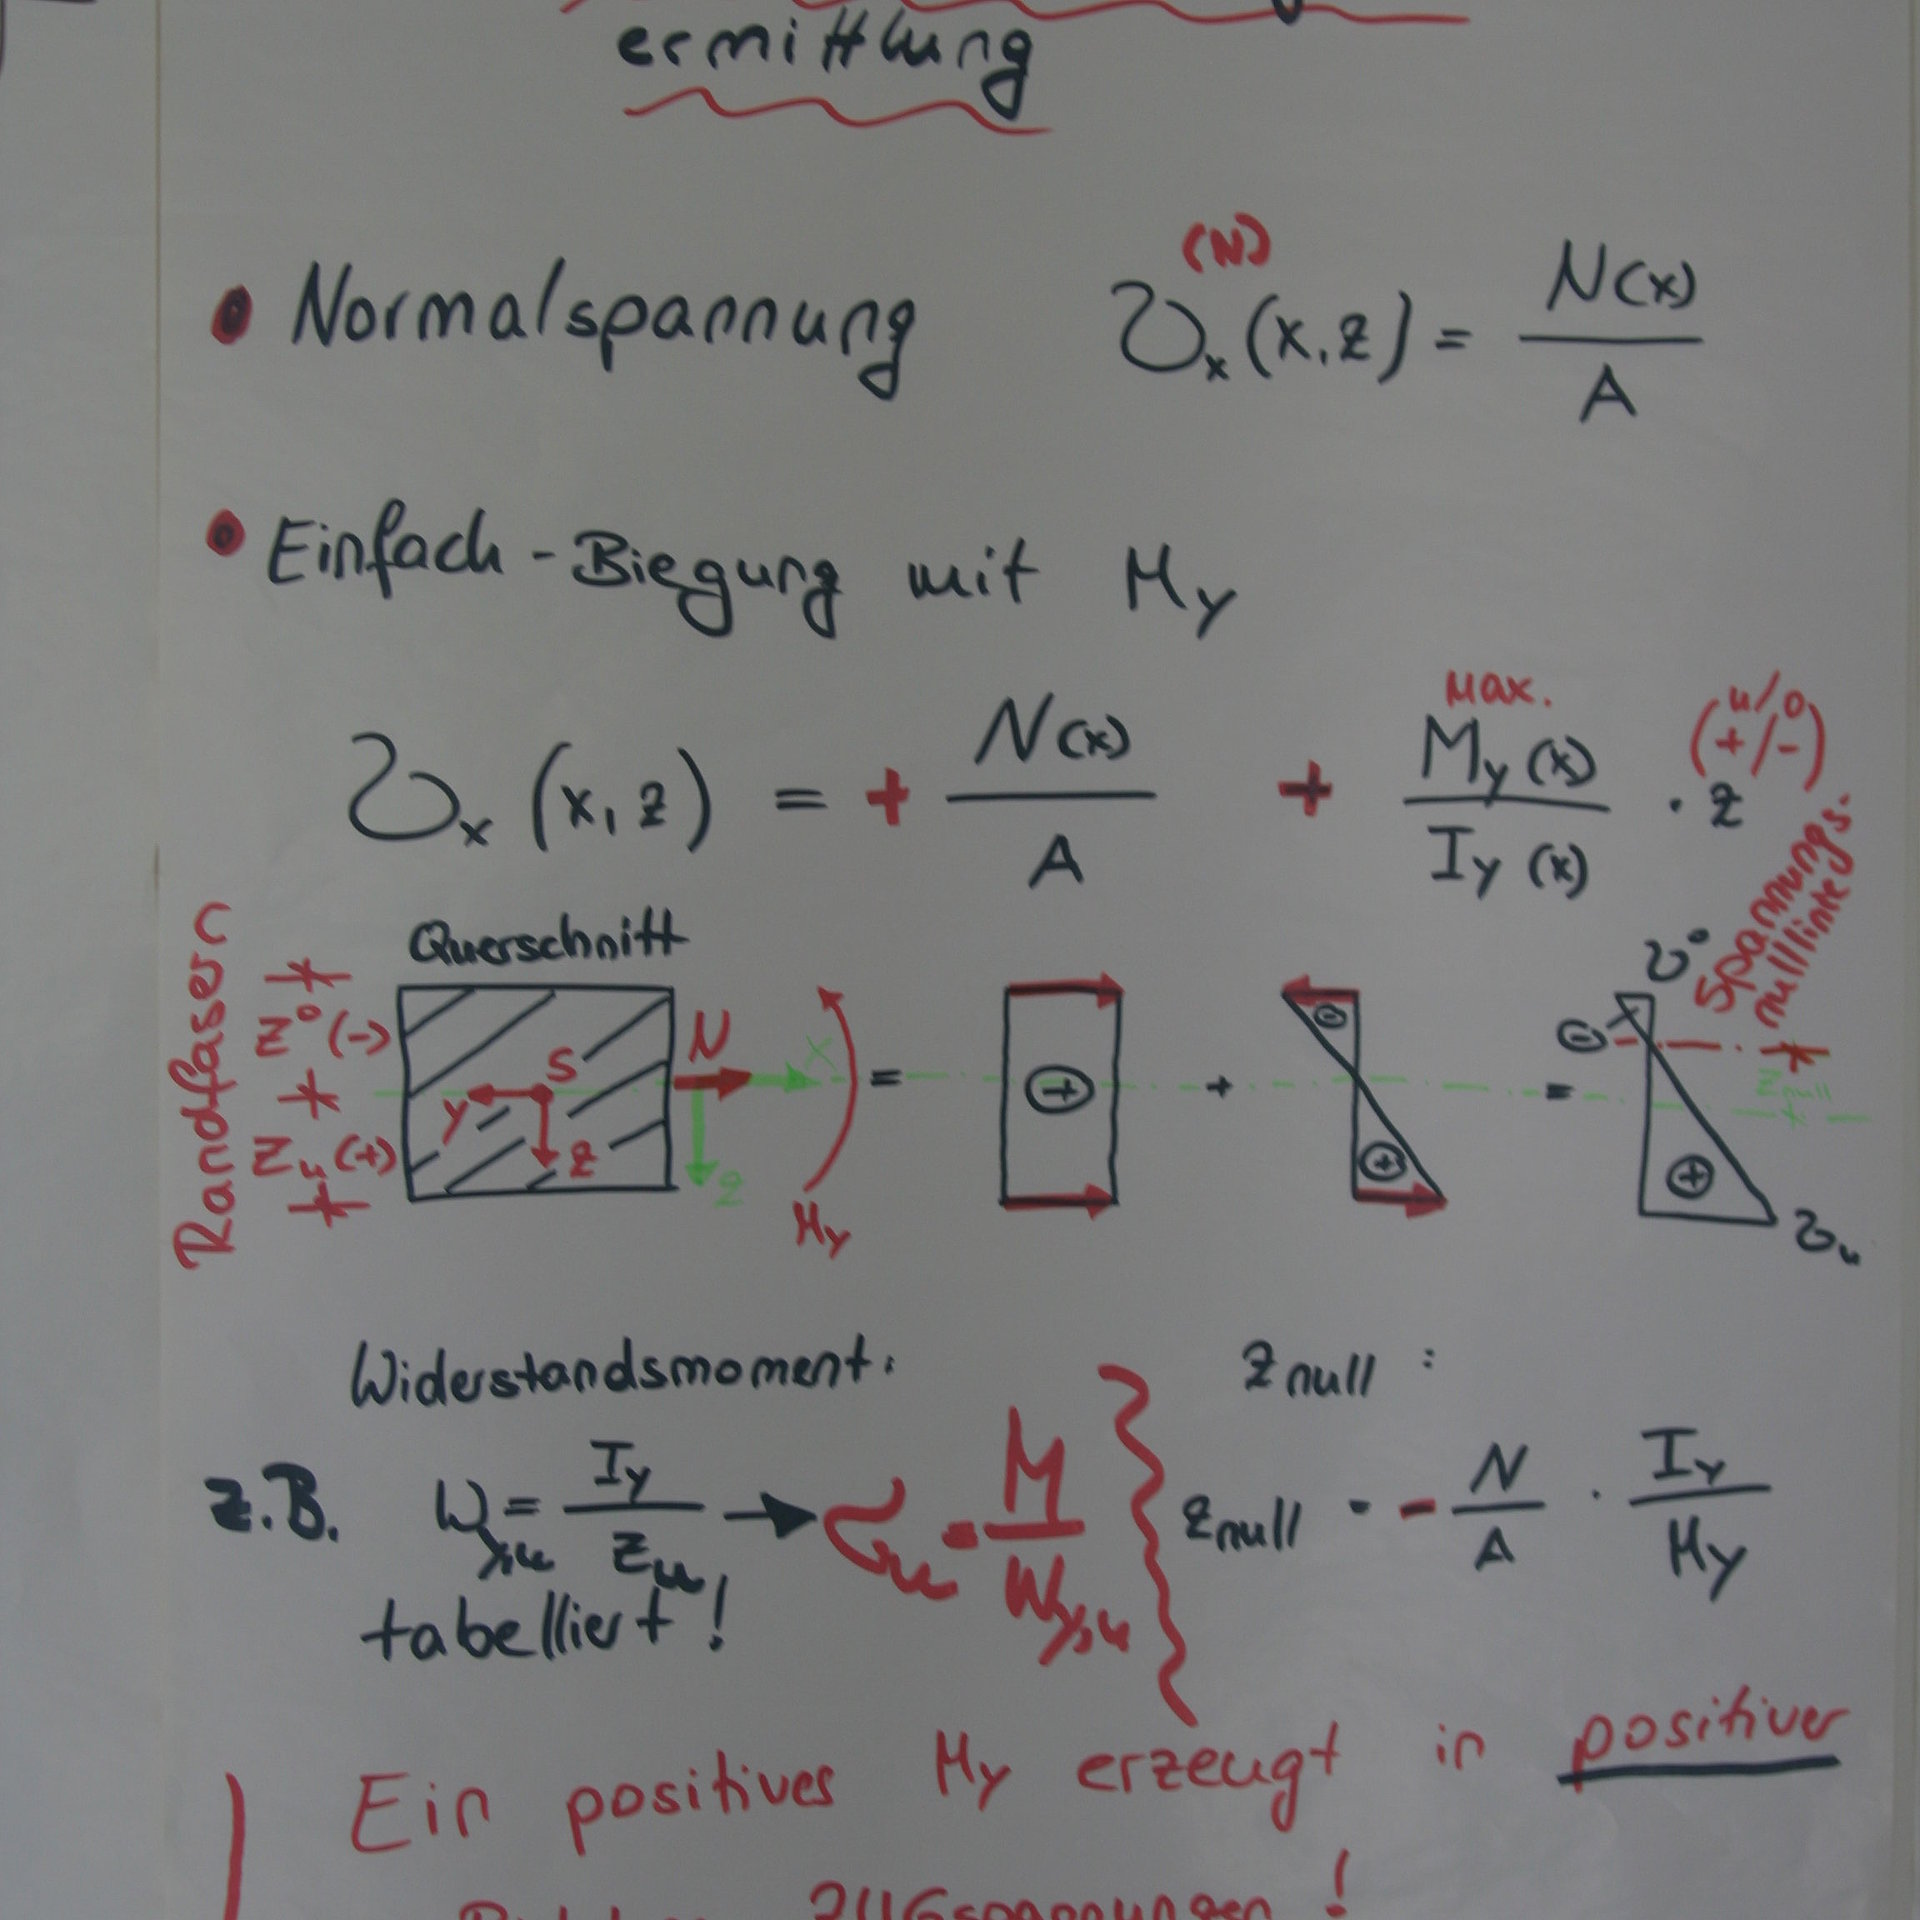 ermittlung
• Normalspannung σx^(N) (x,z) = N(x) / A
• Einfach-Biegung mit My
σx (x,z) = + N(x) / A + max. My(x) / Iy(x) · z (u/o +/-)
Randfasern
z° (-)
zu (+)
Querschnitt
S
y
z
N
x
z
My
= ⊕ + ⊖ ⊕ = ⊖ ⊕
σ°
Spannungs-
nulllinie
znull
σu
Widerstandsmoment:
z.B. Wy,u = Iy / zu → σu = M / Wy,u
tabelliert!
znull :
znull = - N / A · Iy / My
Ein positives My erzeugt in positiver
ZUGspannungen!